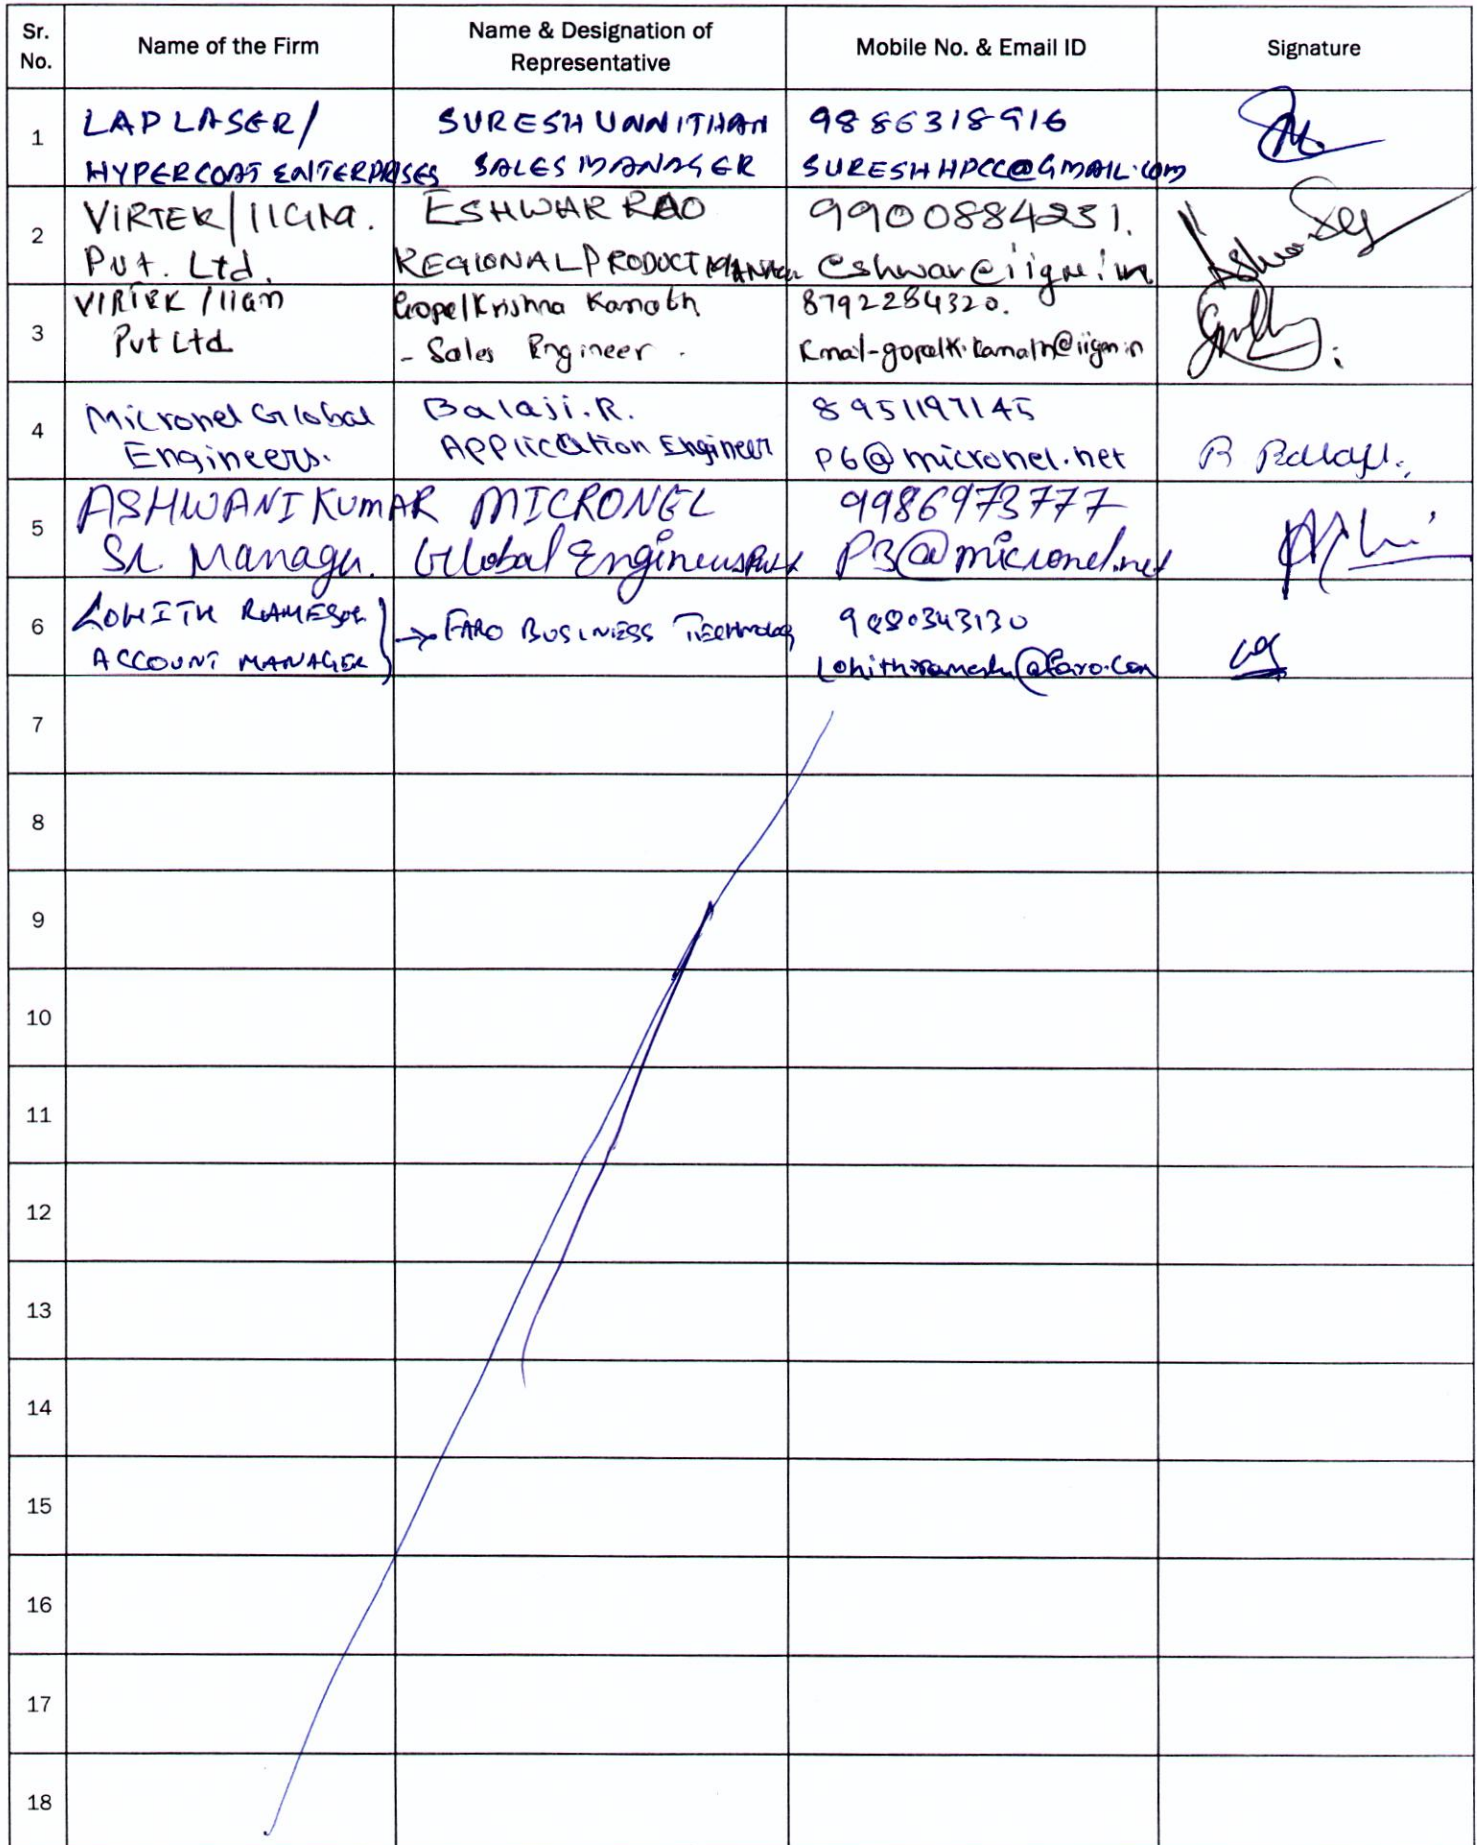 Sr. No.
Name of the Firm
Name & Designation of Representative
Mobile No. & Email ID
Signature
1
LAP LASER/
HYPERCOAT ENTERPRISES
SURESH UNNITHAN
SALES MANAGER
9886318916
SURESHHPCC@GMAIL.COM
2
VIRTEK/IIGM.
Pvt. Ltd.
ESHWAR RAO
REGIONAL PRODUCT MANAGER
9900884231.
eshwar@iigm.in
3
VIRTEK/IIGM
Pvt Ltd
GopalKrishna Kamath
- Sales Engineer.
8792284320.
Email-gopalk.kamath@iigm.in
4
Micronel Global
Engineers.
Balaji.R.
Application Engineer
8951197145
P6@micronel.net
R Balaji.
5
ASHWANI KUMAR
Sr. Manager.
MICRONEL
Global Engineers Pvt Lt
9986973777
P3@micronel.net
6
LOHITH RAMESH
ACCOUNT MANAGER
→ FARO BUSINESS Technology
9880343130
Lohith.ramesh@faro.com
7
8
9
10
11
12
13
14
15
16
17
18